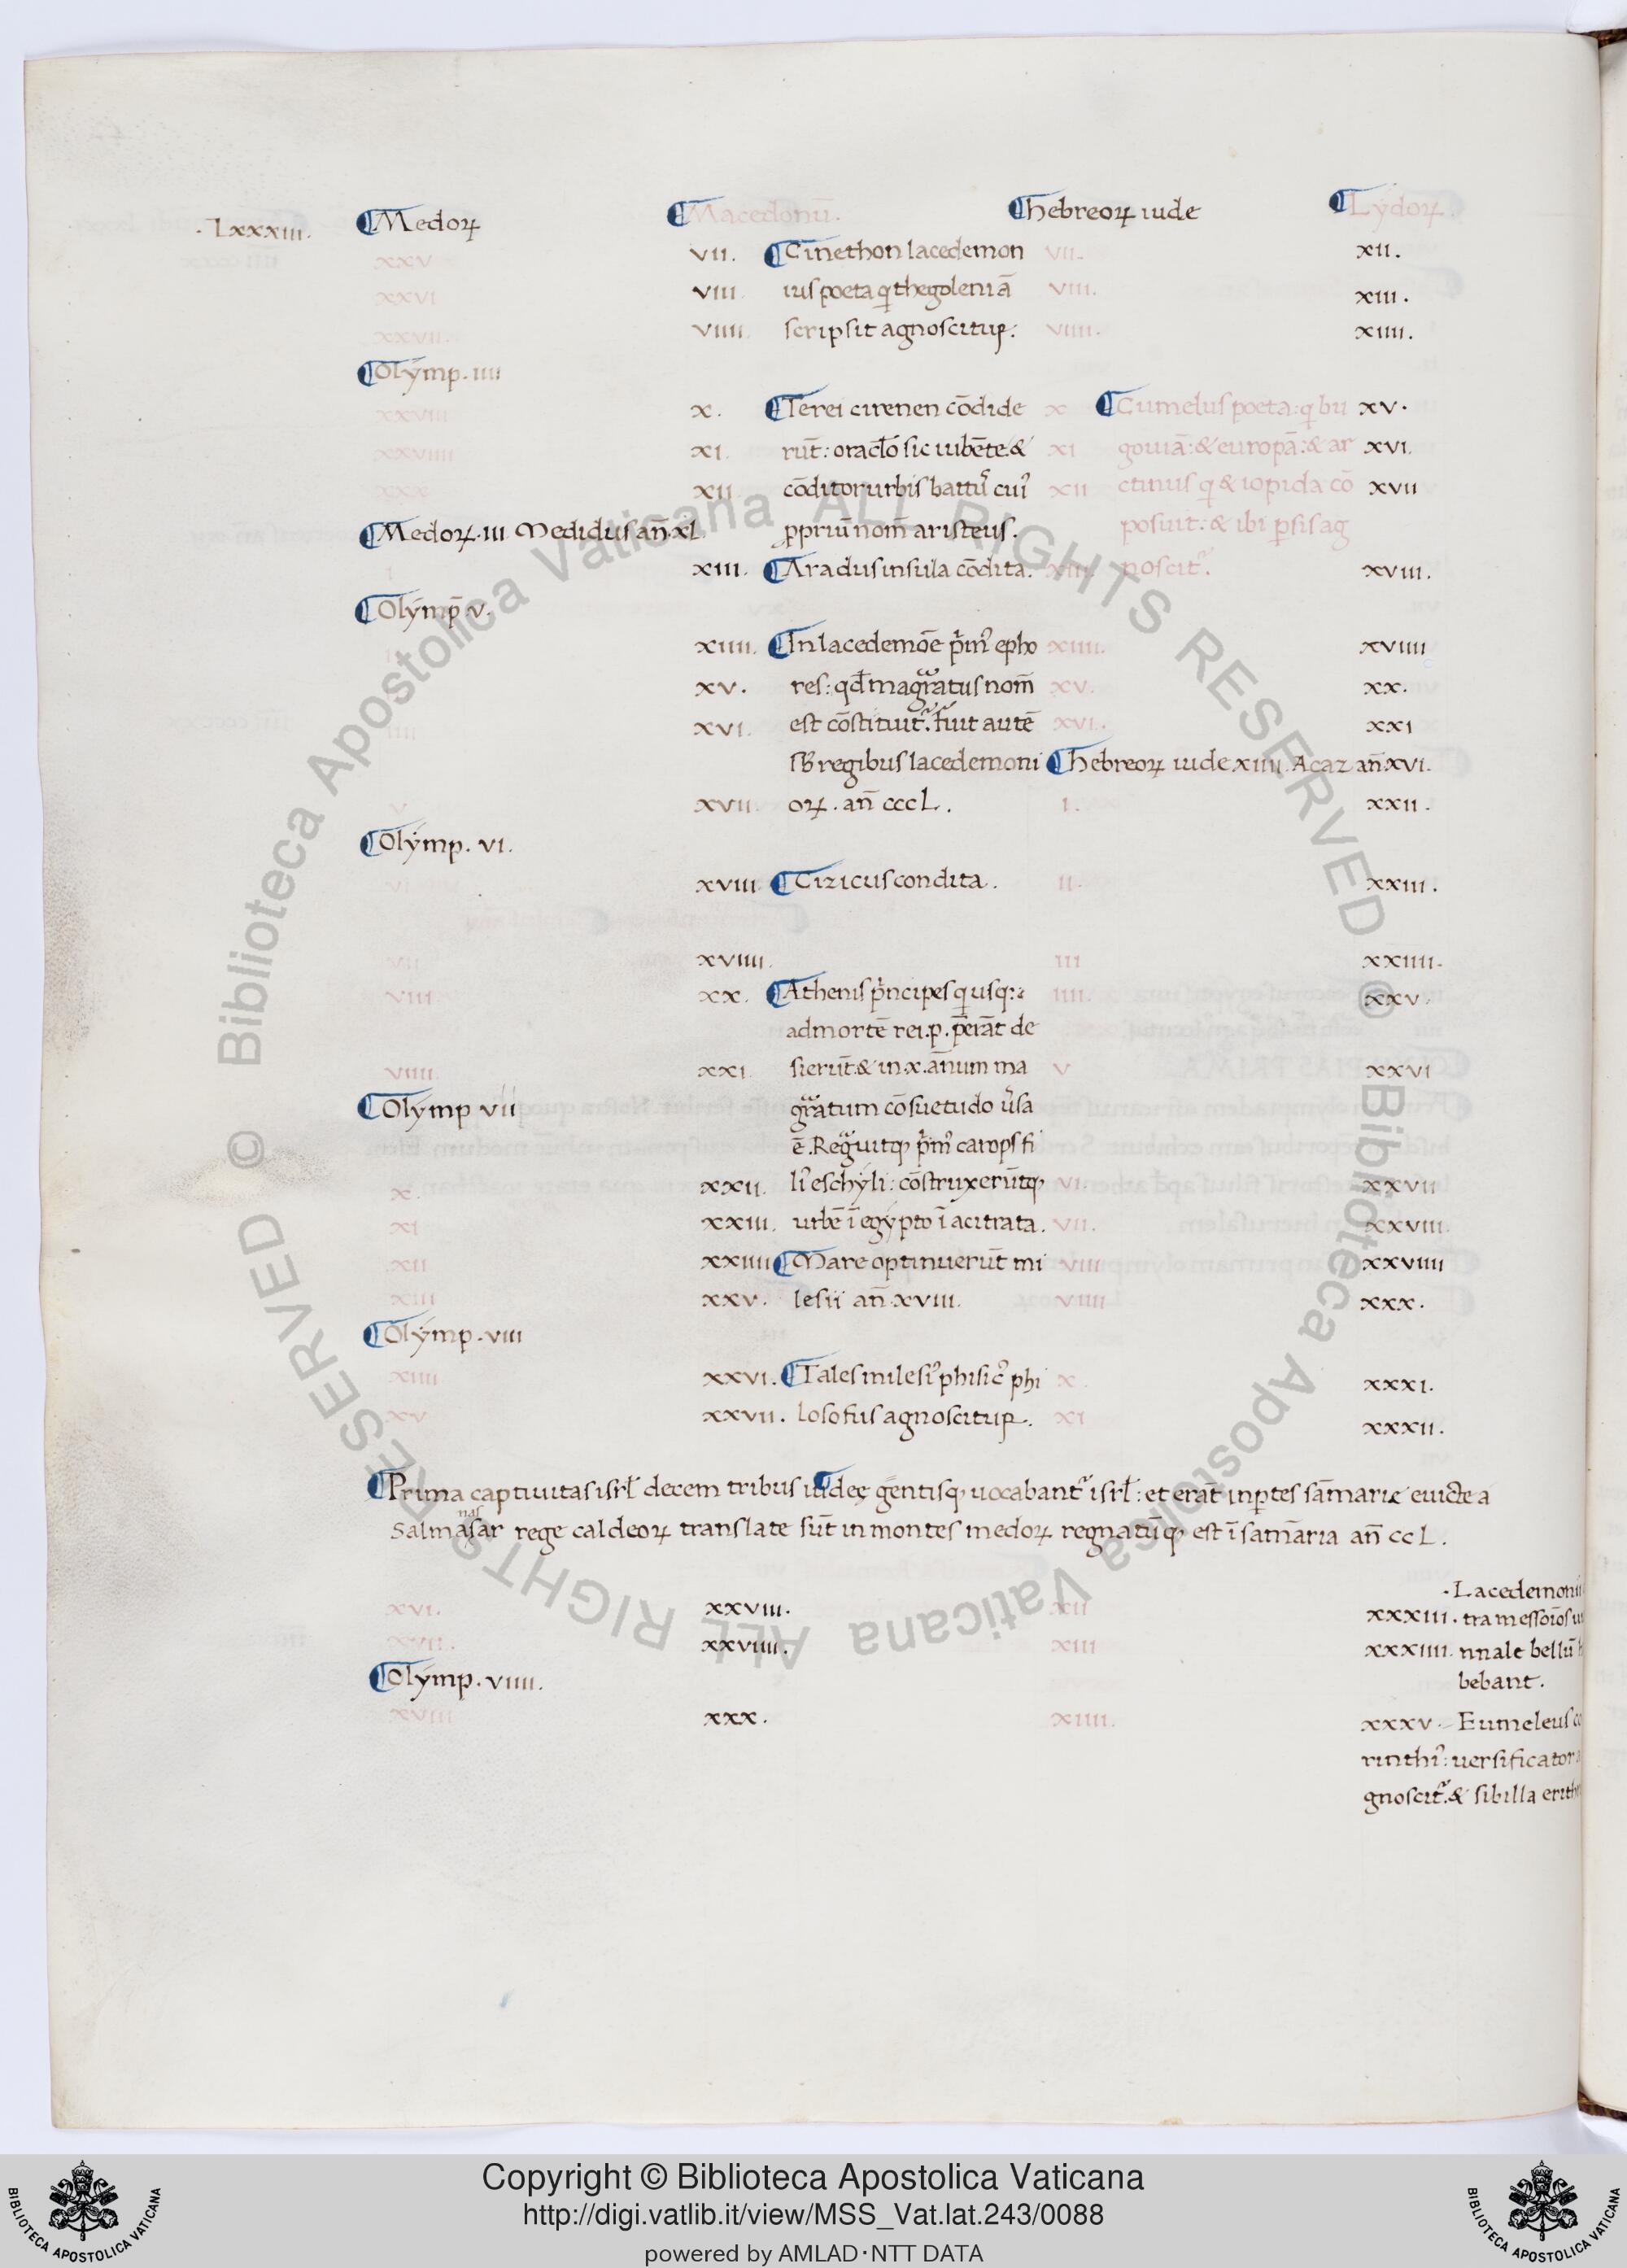 .Lxxxiii. Medoꝝ Macedonū. hebreoꝝ iude Lydoꝝ.
xxv vii. Cinethon lacedemon vii. xii.
xxvi viii ius poeta q̇ thegoleniā viii. xiii.
xxvii. viiii. scripsit agnoscitur. viiii. xiiii.
Olymp. iiii
xxviii x. Terei cirenen cōdide x Cumelus poeta: q bu xv.
xxviiii xi. rūt: oraclo sic iubēte & xi gouiā: & europā: & ar xvi.
xxx xii cōditor urbis battu᷒ cui᷒ xii ctinus q & iopida cō xvii
Medoꝝ. iii Medidus añ. xl. ꝓpriū nom̄ aristeus. posuit: & ibi ꝑsis ag
i xiii. Aradus insula cōdita. xiii. noscit᷑. xviii.
Olymp̄. v.
xiiii. In lacedemōe p̄m᷒ epho xiiii. xviiii
xv. res: qd̄ magr̄atus nom̄ xv. xx.
iiii xvi. est cōstituit᷑. Fuit autē xvi. xxi
sƀ regibus lacedemoni hebreoꝝ iude xiiii. Acaz añ xvi.
v xvii. oꝝ. añ cccL. i. xxii.
Olymp. vi.
vi xviii Cizicus condita. ii. xxiii.
vii xviiii. iii xxiiii.
viii xx. Athenis p̄ncipes q̇ usq: iiii. xxv.
ad mortē rei. p. p̄erāt de
viiii. xxi. sierūt & in x. annum ma v xxvi
Olymp vii gr̄atum cōsuetudo u᷒sa
ē. Regᷓuitqꝫ p̄m᷒ carops fi
x. xxii. li᷒ eschyli: cōstruxerūtqꝫ vi. xxvii
xi xxiii. urbē ī egypto ī acitrata. vii. xxviii.
xii xxiiii Mare optinuerūt mi viii xxviiii
xiii xxv. lesii añ xviii. viiii xxx.
Olymp. viii
xiiii xxvi. Tales milesi᷒ phisic᷒ phi x. xxxi.
xv xxvii. losofus agnoscitur. xi xxxii.
Prima captiuitas isrł decem tribus iudeę gentisqꝫ uocabant᷑ isrł: et erāt in ꝑtes sāmarie euicte a
nas
Salmasar rege caldeoꝝ translate sūt in montes medoꝝ regnatūqꝫ est ī samāria añ ccL.
.Lacedemonii
xvi. xxviii. xii xxxiii. tra messoīos
xvii. xxviiii. xiii xxxiiii. nnale bellū
Olymp. viiii. bebant.
xviii xxx. xiiii. xxxv. Eumeleus co
rinthi᷒: uersificator
gnoscit᷑. & sibilla erith
© Biblioteca Apostolica Vaticana ALL RIGHTS RESERVED
© Biblioteca Apostolica Vaticana ALL RIGHTS RESERVED
Copyright © Biblioteca Apostolica Vaticana
http://digi.vatlib.it/view/MSS_Vat.lat.243/0088
powered by AMLAD·NTT DATA
BIBLIOTECA APOSTOLICA VATICANA
BIBLIOTECA APOSTOLICA VATICANA